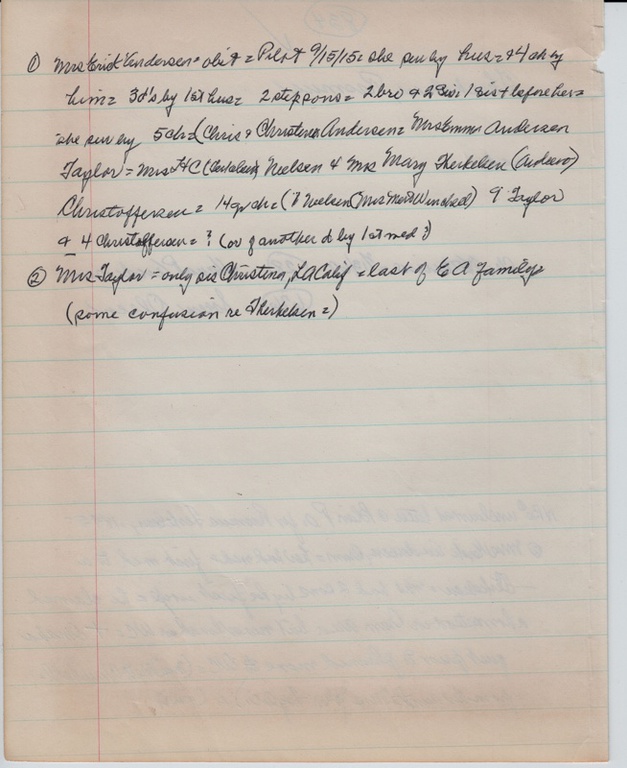 ① Mrs Erick Andersen = obit = Pilot 9/15/15 = she surv by hus = & 4 ch by
him = 3 d's by 1st hus = 2 stepsons = 2 bro & 2 sis = 1 sis & before her =
she surv by 5 ch = (Chris & Christena Andersen = Mrs Emma Andersen
Taylor = Mrs H C Nielsen & Mrs Mary Therkelsen (Anderson)
Christoffersen = 14 gr ch = (1 Nielsen (Mrs Winstead) 9 Taylor
& 4 Christoffersen = ? (or of another d by 1st med ?)
② Mrs Taylor = only sis Christina, LA Calif = last of E A family
(some confusion re Therkelsen =)